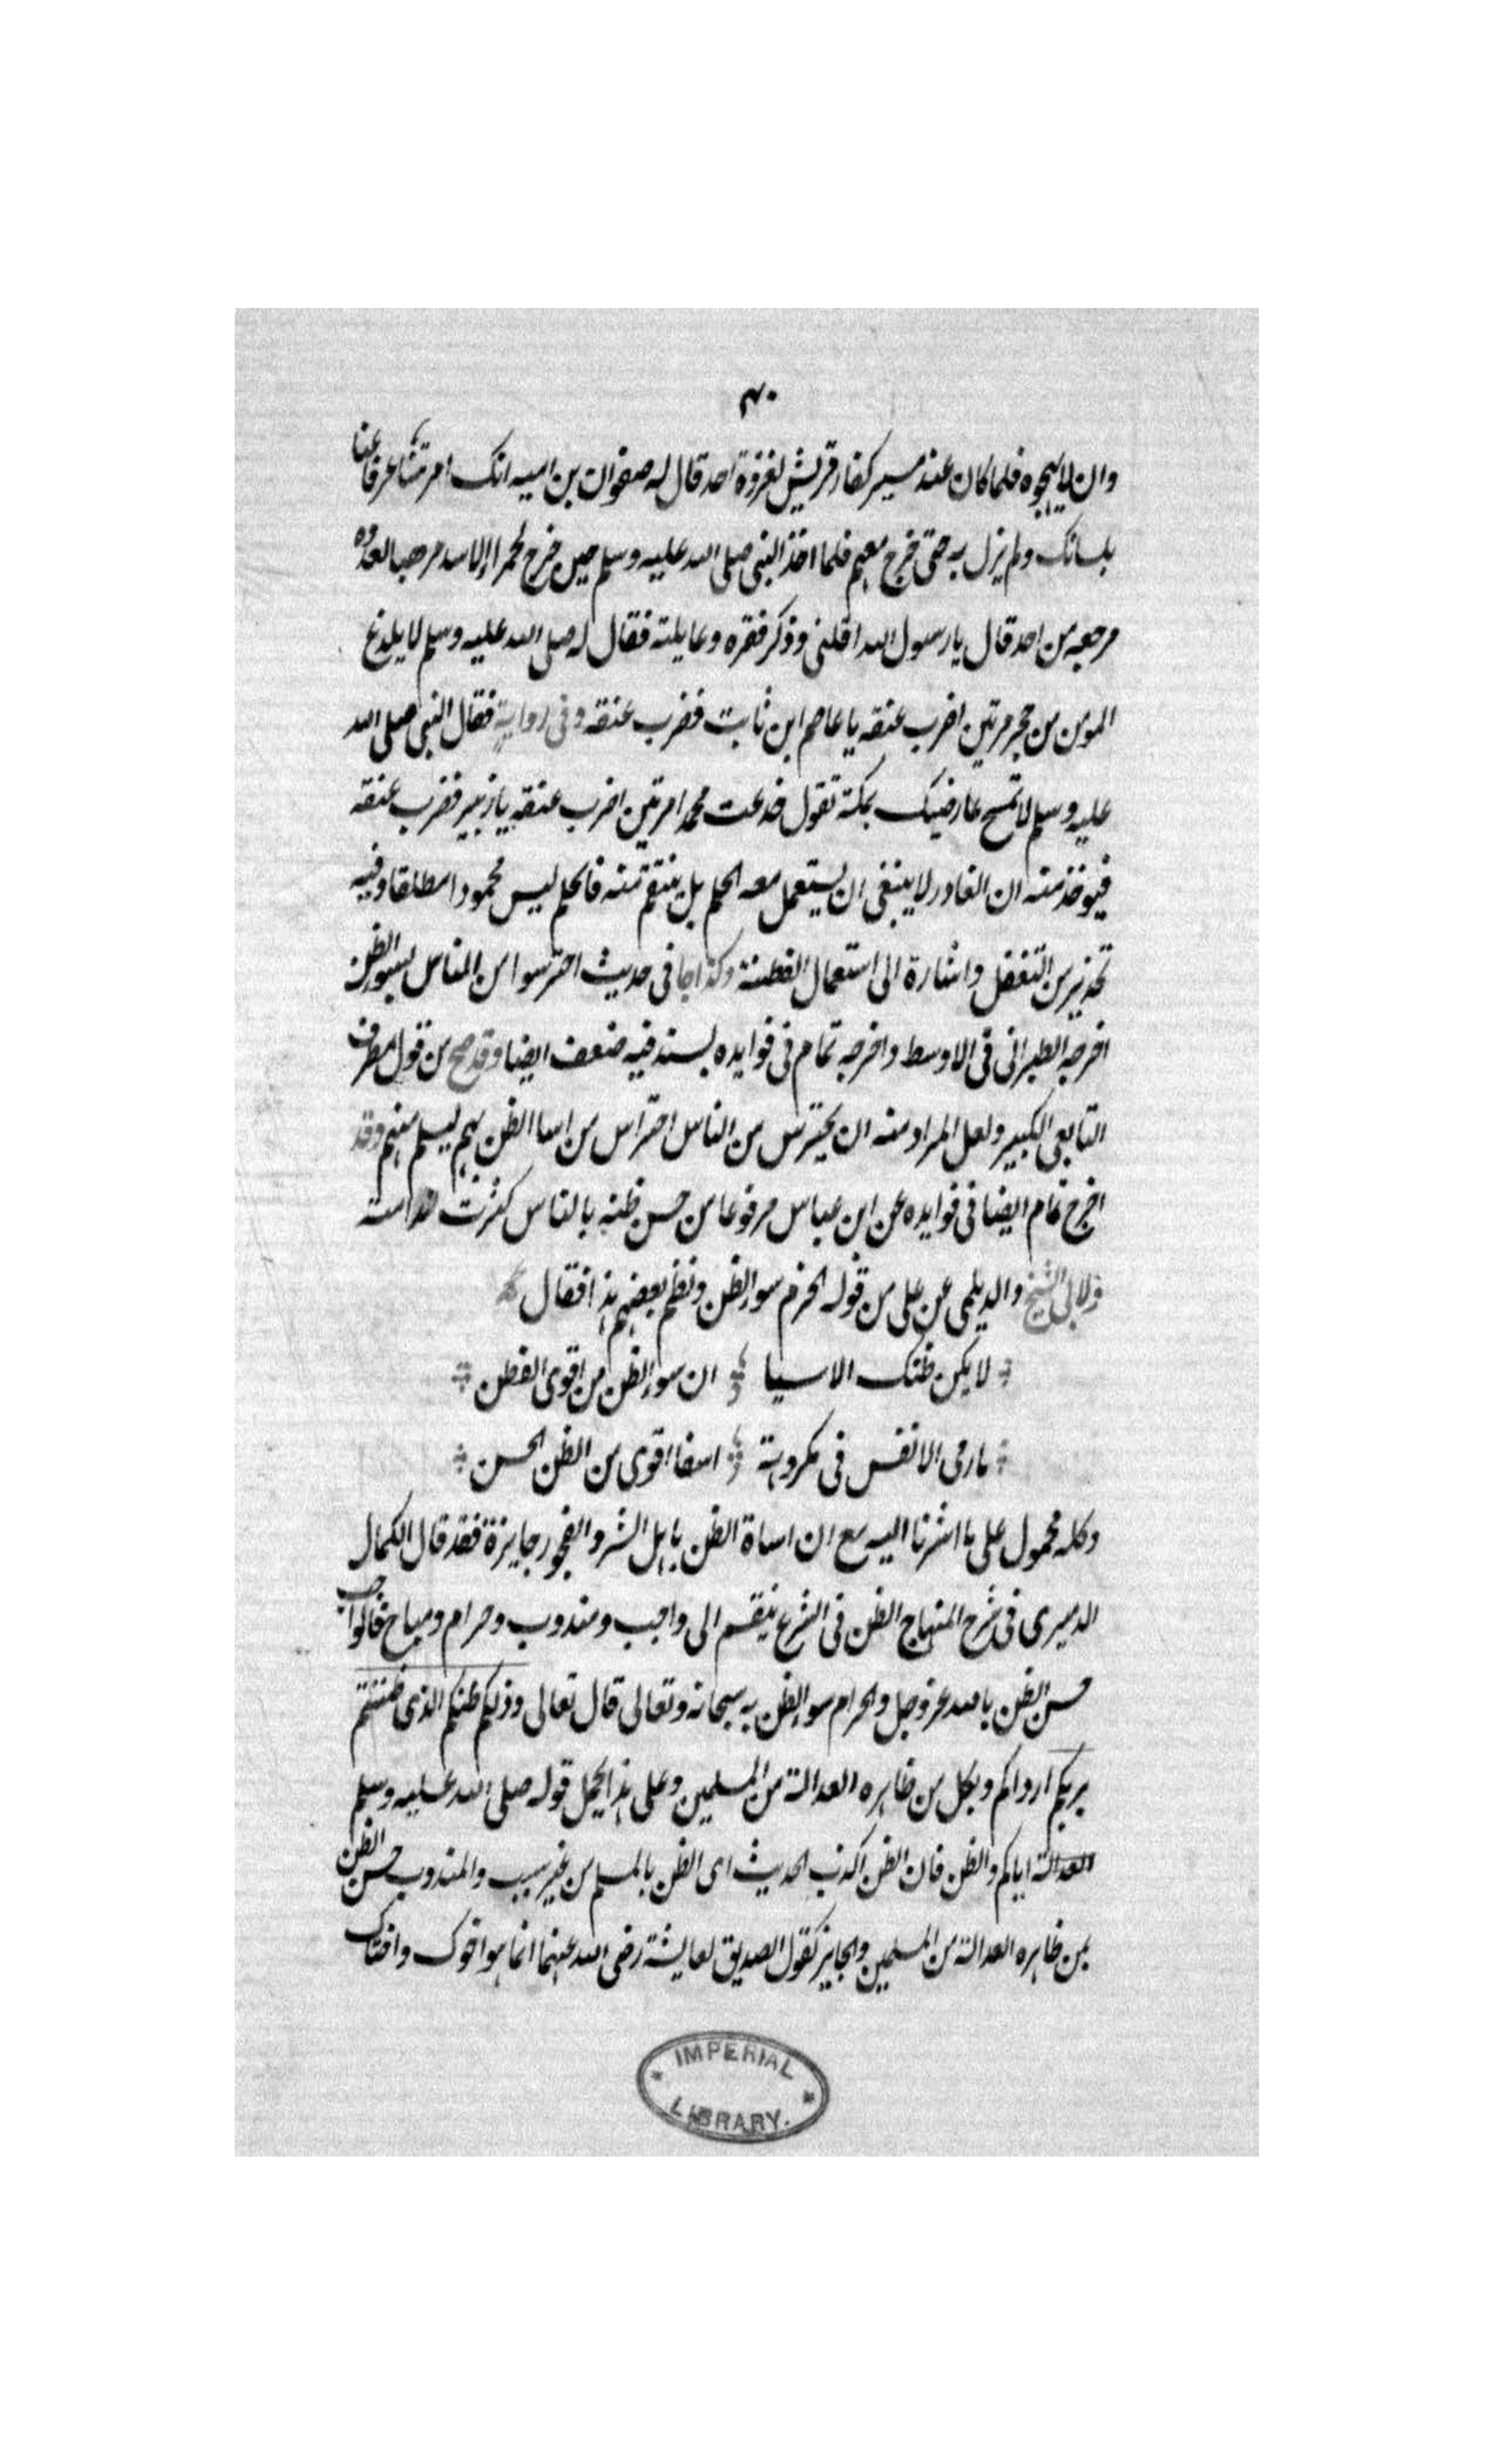 ۴۰
وان لا يهجوه فلما كان عند مسير كفار قريش لغزوة احد قال له صفوان بن اميه انك امر شاعر فاعنا
بلسانك ولم يزل به حتى خرج معهم فلما اخذ النبى صلى الله عليه وسلم حين خرج لحمراء الاسد مرهبا لعدوه
مرجعه من احد قال يا رسول الله اقلنى وذكر فقره وعايلته فقال له صلى الله عليه وسلم لا يلدغ
المومن من حجر مرتين اضرب عنقه يا عاصم ابن ثابت فضرب عنقه وفى رواية فقال النبى صلى الله
عليه وسلم لا تمسح عارضيك بمكة تقول خدعت محمدا مرتين اضرب عنقه يا زبير فضرب عنقه
فيوخذ منه ان الغادر لا ينبغى ان يستعمل معه الحلم بل ينتقم منه فالحلم ليس محمودا مطلقا وفيه
تحذير من التغفل واشارة الى استعمال الفطنة وكذا جا فى حديث احترسوا من الناس بسوء الظن
اخرجه الطبرانى فى الاوسط واخرجه تمام فى فوايده بسند فيه ضعف ايضا وقد صح من قول مطرف
التابعى الكبير ولعل المراد منه ان يحترس من الناس احتراس من اسا الظن بهم ليسلم منهم وقد
اخرج تمام ايضا فى فوايده عن ابن عباس مرفوعا من حسن ظنه بالناس كثرت ندامته
ولابى الشيخ والديلمى عن على من قوله الحزم سوء الظن ونظم بعضهم هذا فقال
لا يكن ظنك الا سيا ان سوء الظن من اقوى الفطن
ما رمى الانفس فى مكروهة اسفا اقوى من الظن الحسن
وكله محمول على ما اشرنا اليه مع ان اساة الظن باهل الشر والفجور جايزة فقد قال الكمال
الدميرى فى شرح المنهاج الظن فى الشرع ينقسم الى واجب ومندوب وحرام ومباح فالواجب
حسن الظن بالله عز وجل والحرام سوء الظن به سبحانه وتعالى قال تعالى وذلكم ظنكم الذى ظننتم
بربكم ارداكم وبكل من ظاهره العدالة من المسلمين وعلى هذا يحمل قوله صلى الله عليه وسلم
العدالة اياكم والظن فان الظن اكذب الحديث اى الظن بالمسلم من غير سبب والمندوب حسن الظن
بمن ظاهره العدالة من المسلمين والجايز كقول الصديق لعايشة رضى الله عنهما انما هو اخوك واختاك
IMPERIAL
LIBRARY.